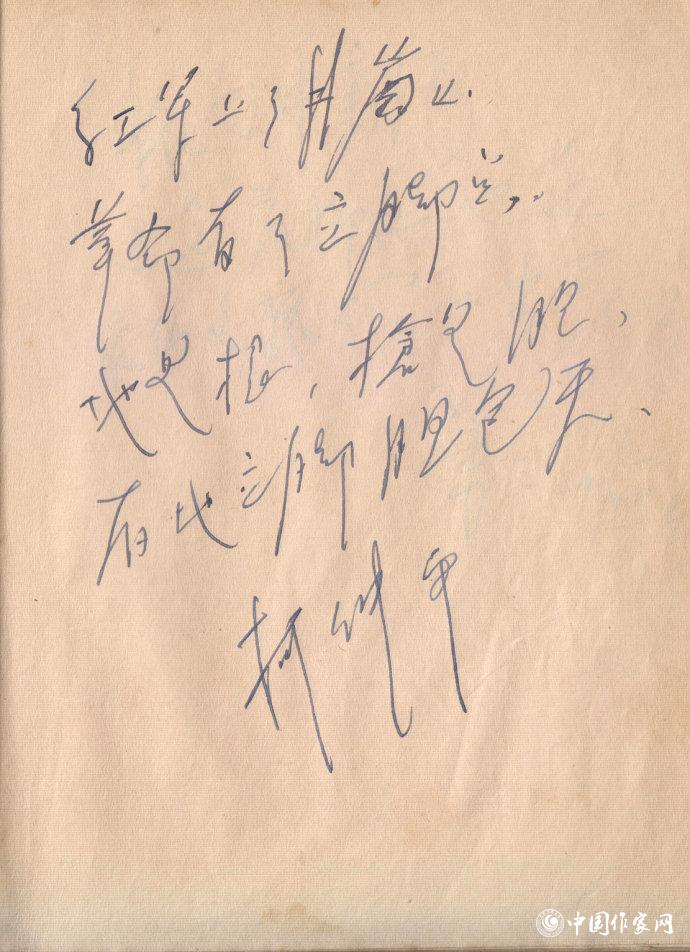 红军上了井崗山.
革命有了立脚点..
地是根，槍是胆，
有地立脚胆包天、
柯仲平
中国作家网